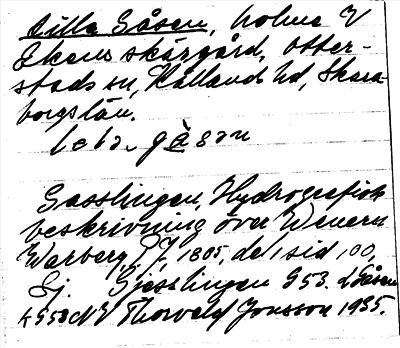 Lilla Gåsen, holme V
Ekens skärgård, Otter-
stads sn, Kållands hd, Skara-
borgs län.
gåsan
Gasslingen, Hydrografisk
beskrivning över Wenern
Warberg, P J, 1805, del 1 sid 100,
Ej Gjesslingen G 53. L Gåsen
NV Thorvald Jonsson 1935.